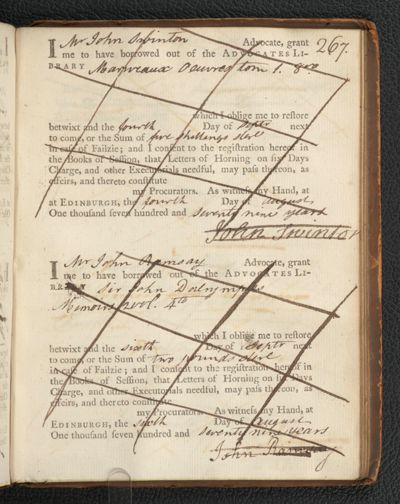 267.
I Mr John Swinton Advocate, grant
me to have borrowed out of the ADVOCATES LI-
BRARY Marivaux Oeuvres tom 1. 8vo
which I oblige me to reſtore
betwixt and the fourth Day of Septr next
to come, or the Sum of five shillings sterl
in caſe of Failzie; and I conſent to the regiſtration hereof in
the Books of Seſſion, that Letters of Horning on ſix Days
Charge, and other Executorials needful, may paſs thereon, as
effeirs, and thereto conſtitute
my Procurators. As witneſs my Hand, at
at EDINBURGH, the fourth Day of august
One thouſand ſeven hundred and seventy nine years
John Swinton
I Mr John Ramsay Advocate, grant
me to have borrowed out of the ADVOCATES LI-
BRARY Sir John Dalrymples
Memoirs vol. 4to
which I oblige me to reſtore
betwixt and the sixth Day of Septr next
to come, or the Sum of two pounds sterl
in caſe of Failzie; and I conſent to the regiſtration hereof in
the Books of Seſſion, that Letters of Horning on ſix Days
Charge, and other Executorials needful, may paſs thereon, as
effeirs, and thereto conſtitute
my Procurators. As witneſs my Hand, at
EDINBURGH, the sixth Day of august
One thouſand ſeven hundred and seventy nine years
John Ramsay